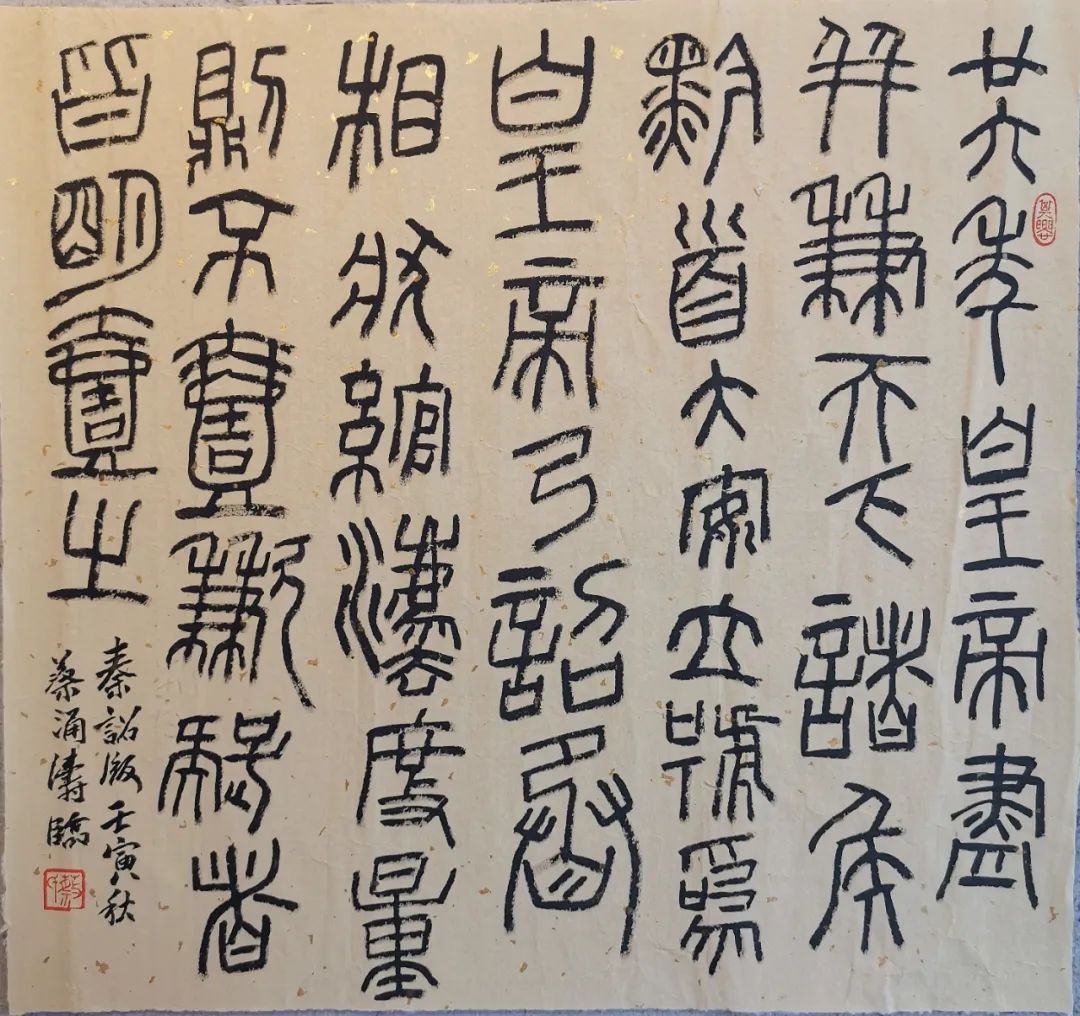 廿六年皇帝盡
并兼天下諸侯
黔首大安立號爲
皇帝乃詔丞
相狀綰灋度量
則不壹歉疑者
皆明壹之
秦詔版壬寅秋
蔡涌濤臨